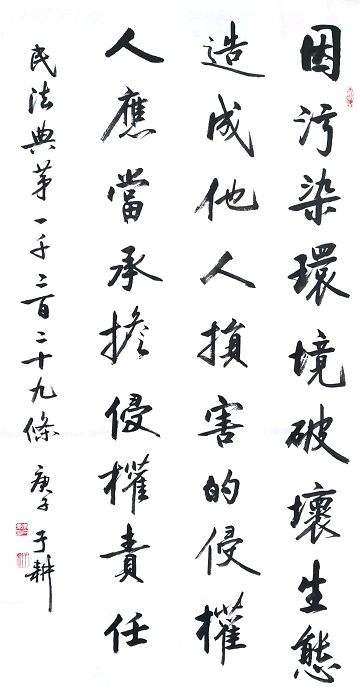 因污染環境破壞生態
造成他人損害的侵權
人應當承擔侵權責任
民法典第一千二百二十九條 庚子 于耕